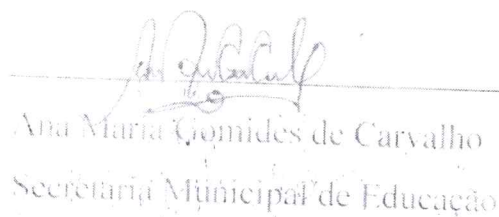 Ana Maria Gomides de Carvalho
Secretária Municipal de Educação